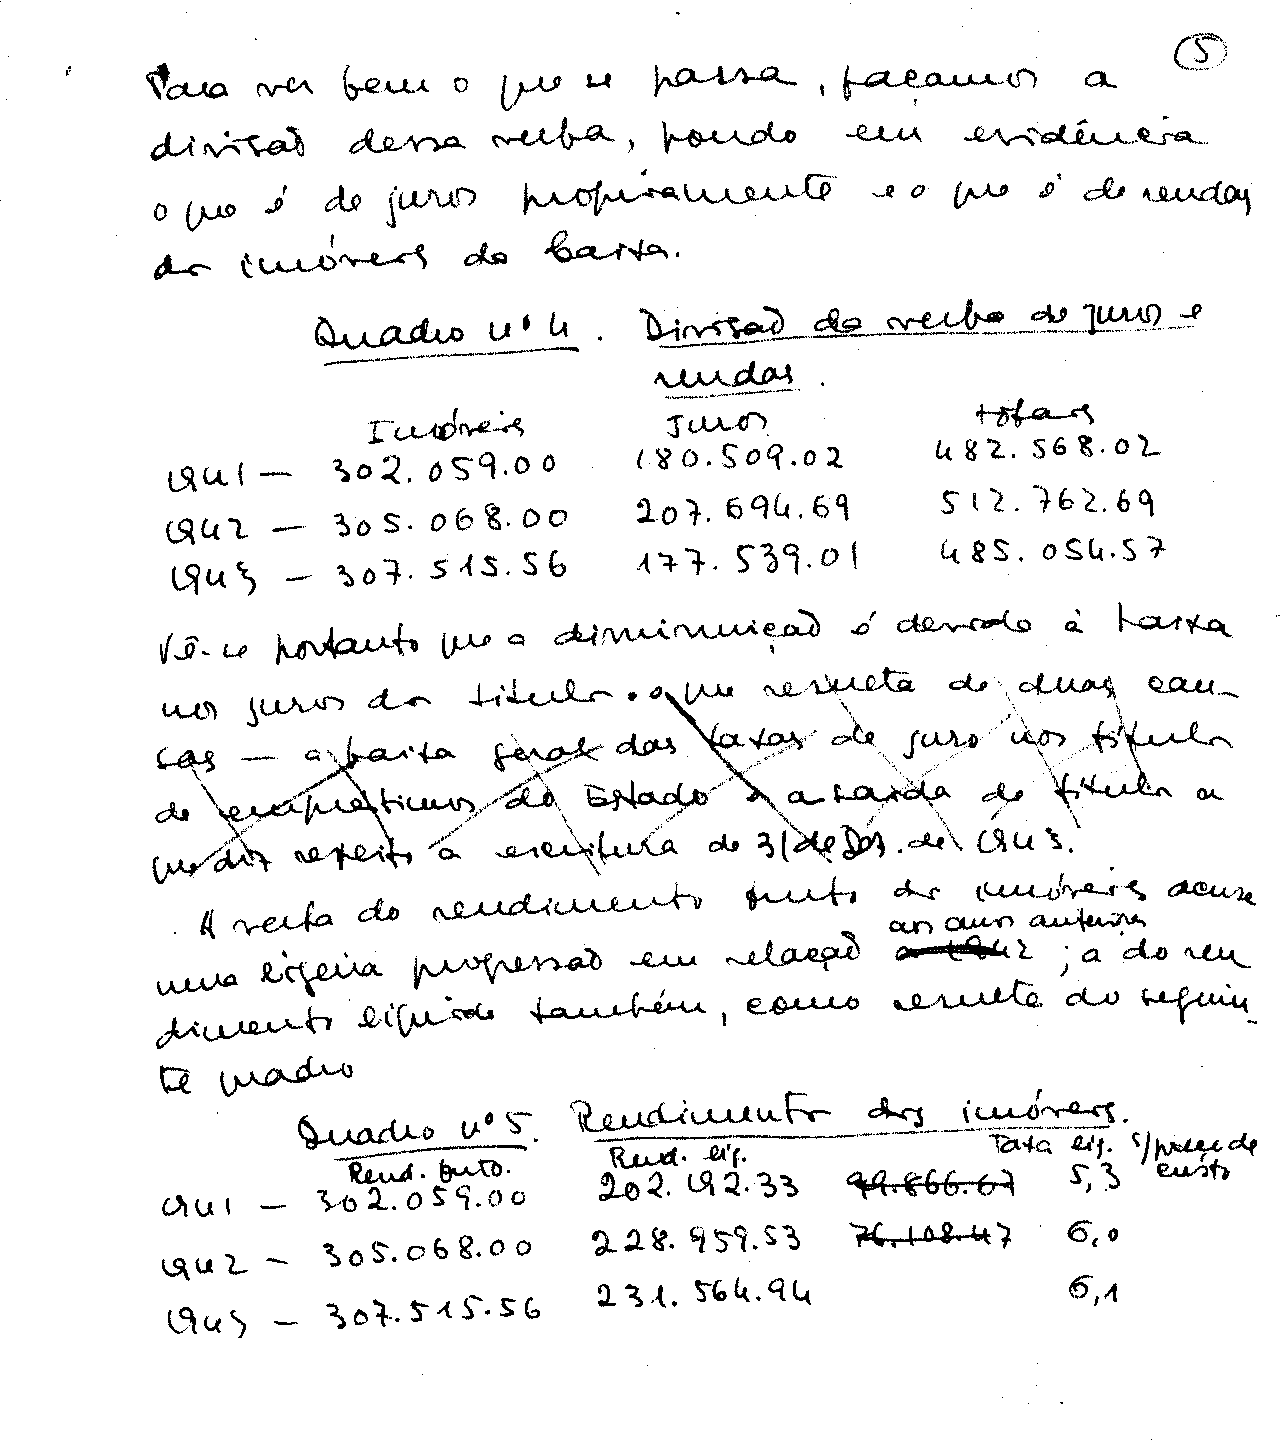 5
Para ver bem o que se passa, façamos a
divisão dessa verba, pondo em evidência
o que é de juros propriamente e o que é de rendas
dos imóveis da Caixa.
Quadro nº 4. Divisão da verba de juros e
rendas.
Imóveis Juros totais
1941 — 302.059.00 180.509.02 482.568.02
1942 — 305.068.00 207.694.69 512.762.69
1943 — 307.515.56 177.539.01 485.054.57
Vê-se portanto que a diminuição é devida à baixa
nos juros dos titulos. o que resulta de duas cau-
sas — a baixa geral das taxas de juro nos titulos
de emprestimos do Estado e a saida de titulos a
que diz respeito a escritura de 31 de Dez. de 1943.
A verba do rendimento bruto dos imóveis acusa
aos anos anteriores
uma ligeira progressão em relação a 1942 ; a do ren
dimento liquido também, como resulta do seguin-
te quadro
Quadro nº 5. Rendimento dos imóveis.
Rend. bruto. Rend. liq. Taxa liq. s/preço de
custo
1941 — 302.059.00 202.192.33 99.866.67 5,3
1942 — 305.068.00 228.959.53 76.108.47 6,0
1943 — 307.515.56 231.564.94 6,1